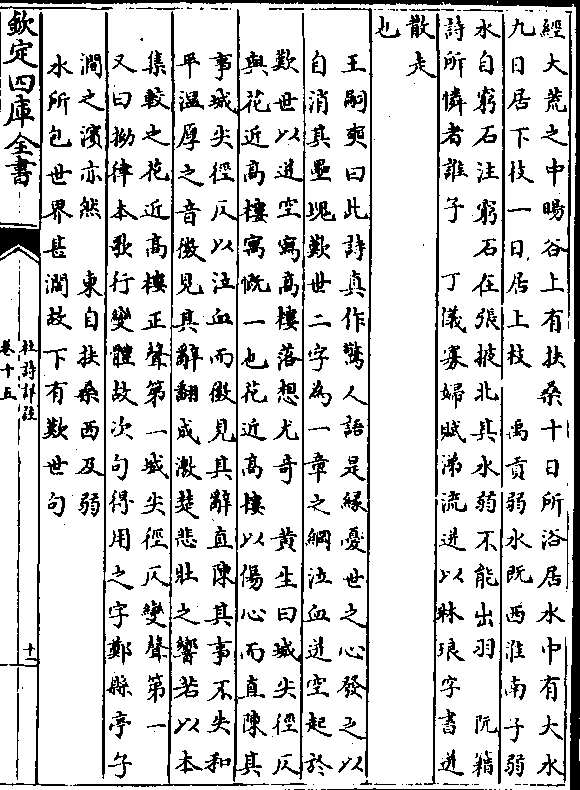 經大荒之中暘谷上有扶桑十日所浴居水中有大水
九日居下枝一日居上枝　禹貢弱水既西淮南子弱
水自窮石注窮石在張掖北其水弱不能出羽　阮籍
詩所憐者誰子　丁儀寡婦賦涕流迸以淋琅字書迸
散走
也
王嗣奭曰此詩真作驚人語是緣憂世之心發之以
自消其壘塊歎世二字為一章之綱泣血迸空起於
歎世以迸空寫高樓落想尤奇　黄生曰城尖徑仄
與花近高樓寓慨一也花近高樓以傷心而直陳其
事城尖徑仄以泣血而微見其辭直陳其事不失和
平温厚之音微見其辭翻成激楚悲壯之響若以本
集較之花近高樓正聲第一城尖徑仄變聲第一
又曰拗律本歌行變體故次句得用之字鄭縣亭子
澗之濱亦然　東自扶桑西及弱
水所包世界甚濶故下有歎世句
欽定四庫全書
杜詩詳註
卷十五
十一